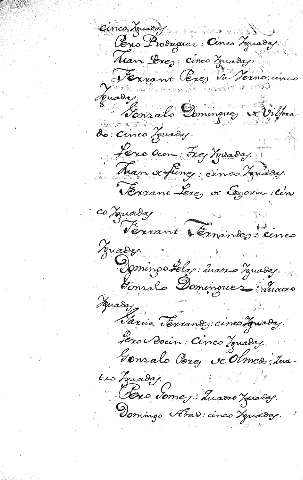 cinco Yuadas
Pero Rodriguez: Cinco Yuadas
Juan Peres: cinco Yuadas
Ferrant Peres su Yerno: cinco
Yuadas
Gonzalo Dominguez de
do: cinco Yuadas
Pero Tres Yuadas
Juan de Funes: cinco Yuadas
Ferrant Peres de Segovia: Cin
co Yuadas
Ferrant Fernández: cinco
Yuadas
Domingo Quatro Yuadas
Gonzalo Dominguez: Quatro
Yuadas
Garcia Ferrandes: cinco Yuadas
Pero Cinco Yuadas
Gonzalo Peres de Olmedo: Qua
tro Yuadas
Pero Gomes: Quatro Yuadas
Domingo Abad: cinco Yuadas